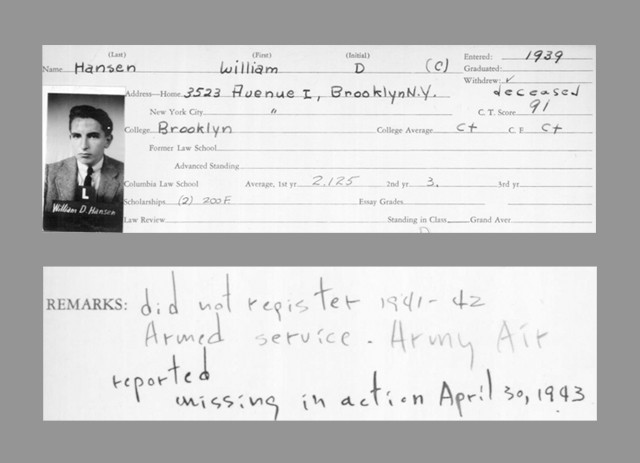 (Last) (First) (Initial)
Name Hansen William D (C) Entered: 1939
Graduated:
Withdrew: ✓
Address—Home 3523 Avenue I, Brooklyn N.Y. deceased
New York City " C. T. Score 91
College Brooklyn College Average C+ C. F. C+
Former Law School
Advanced Standing
Columbia Law School Average, 1st yr. 2.125 2nd yr. 3. 3rd yr.
Scholarships (2) 200 F. Essay Grades
Law Review Standing in Class Grand Aver
L
William D. Hansen
REMARKS: did not register 1941-42
Armed service. Army Air
reported
missing in action April 30, 1943